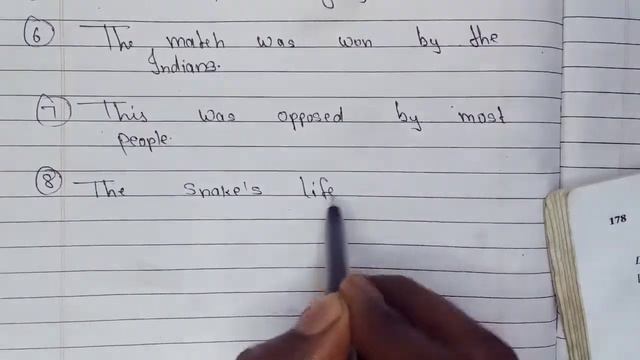 6 The match was won by the
Indians.
7 This was opposed by most
people.
8 The snake's life
178